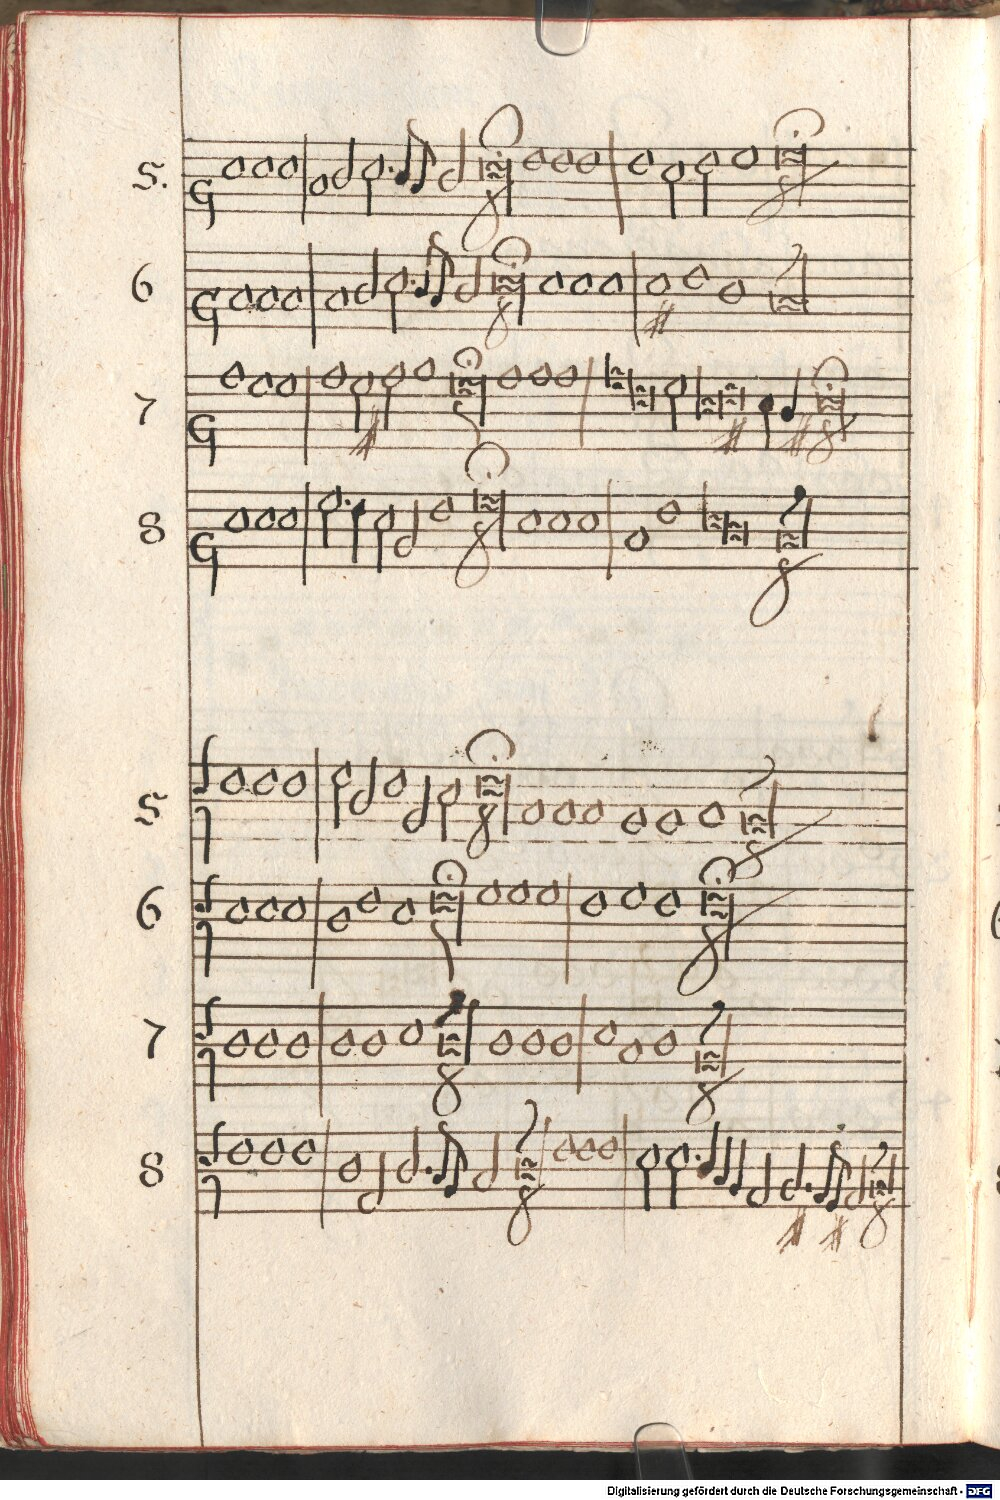 5.
6
7
8
5
6
7
8
Digitalisierung gefördert durch die Deutsche Forschungsgemeinschaft - DFG